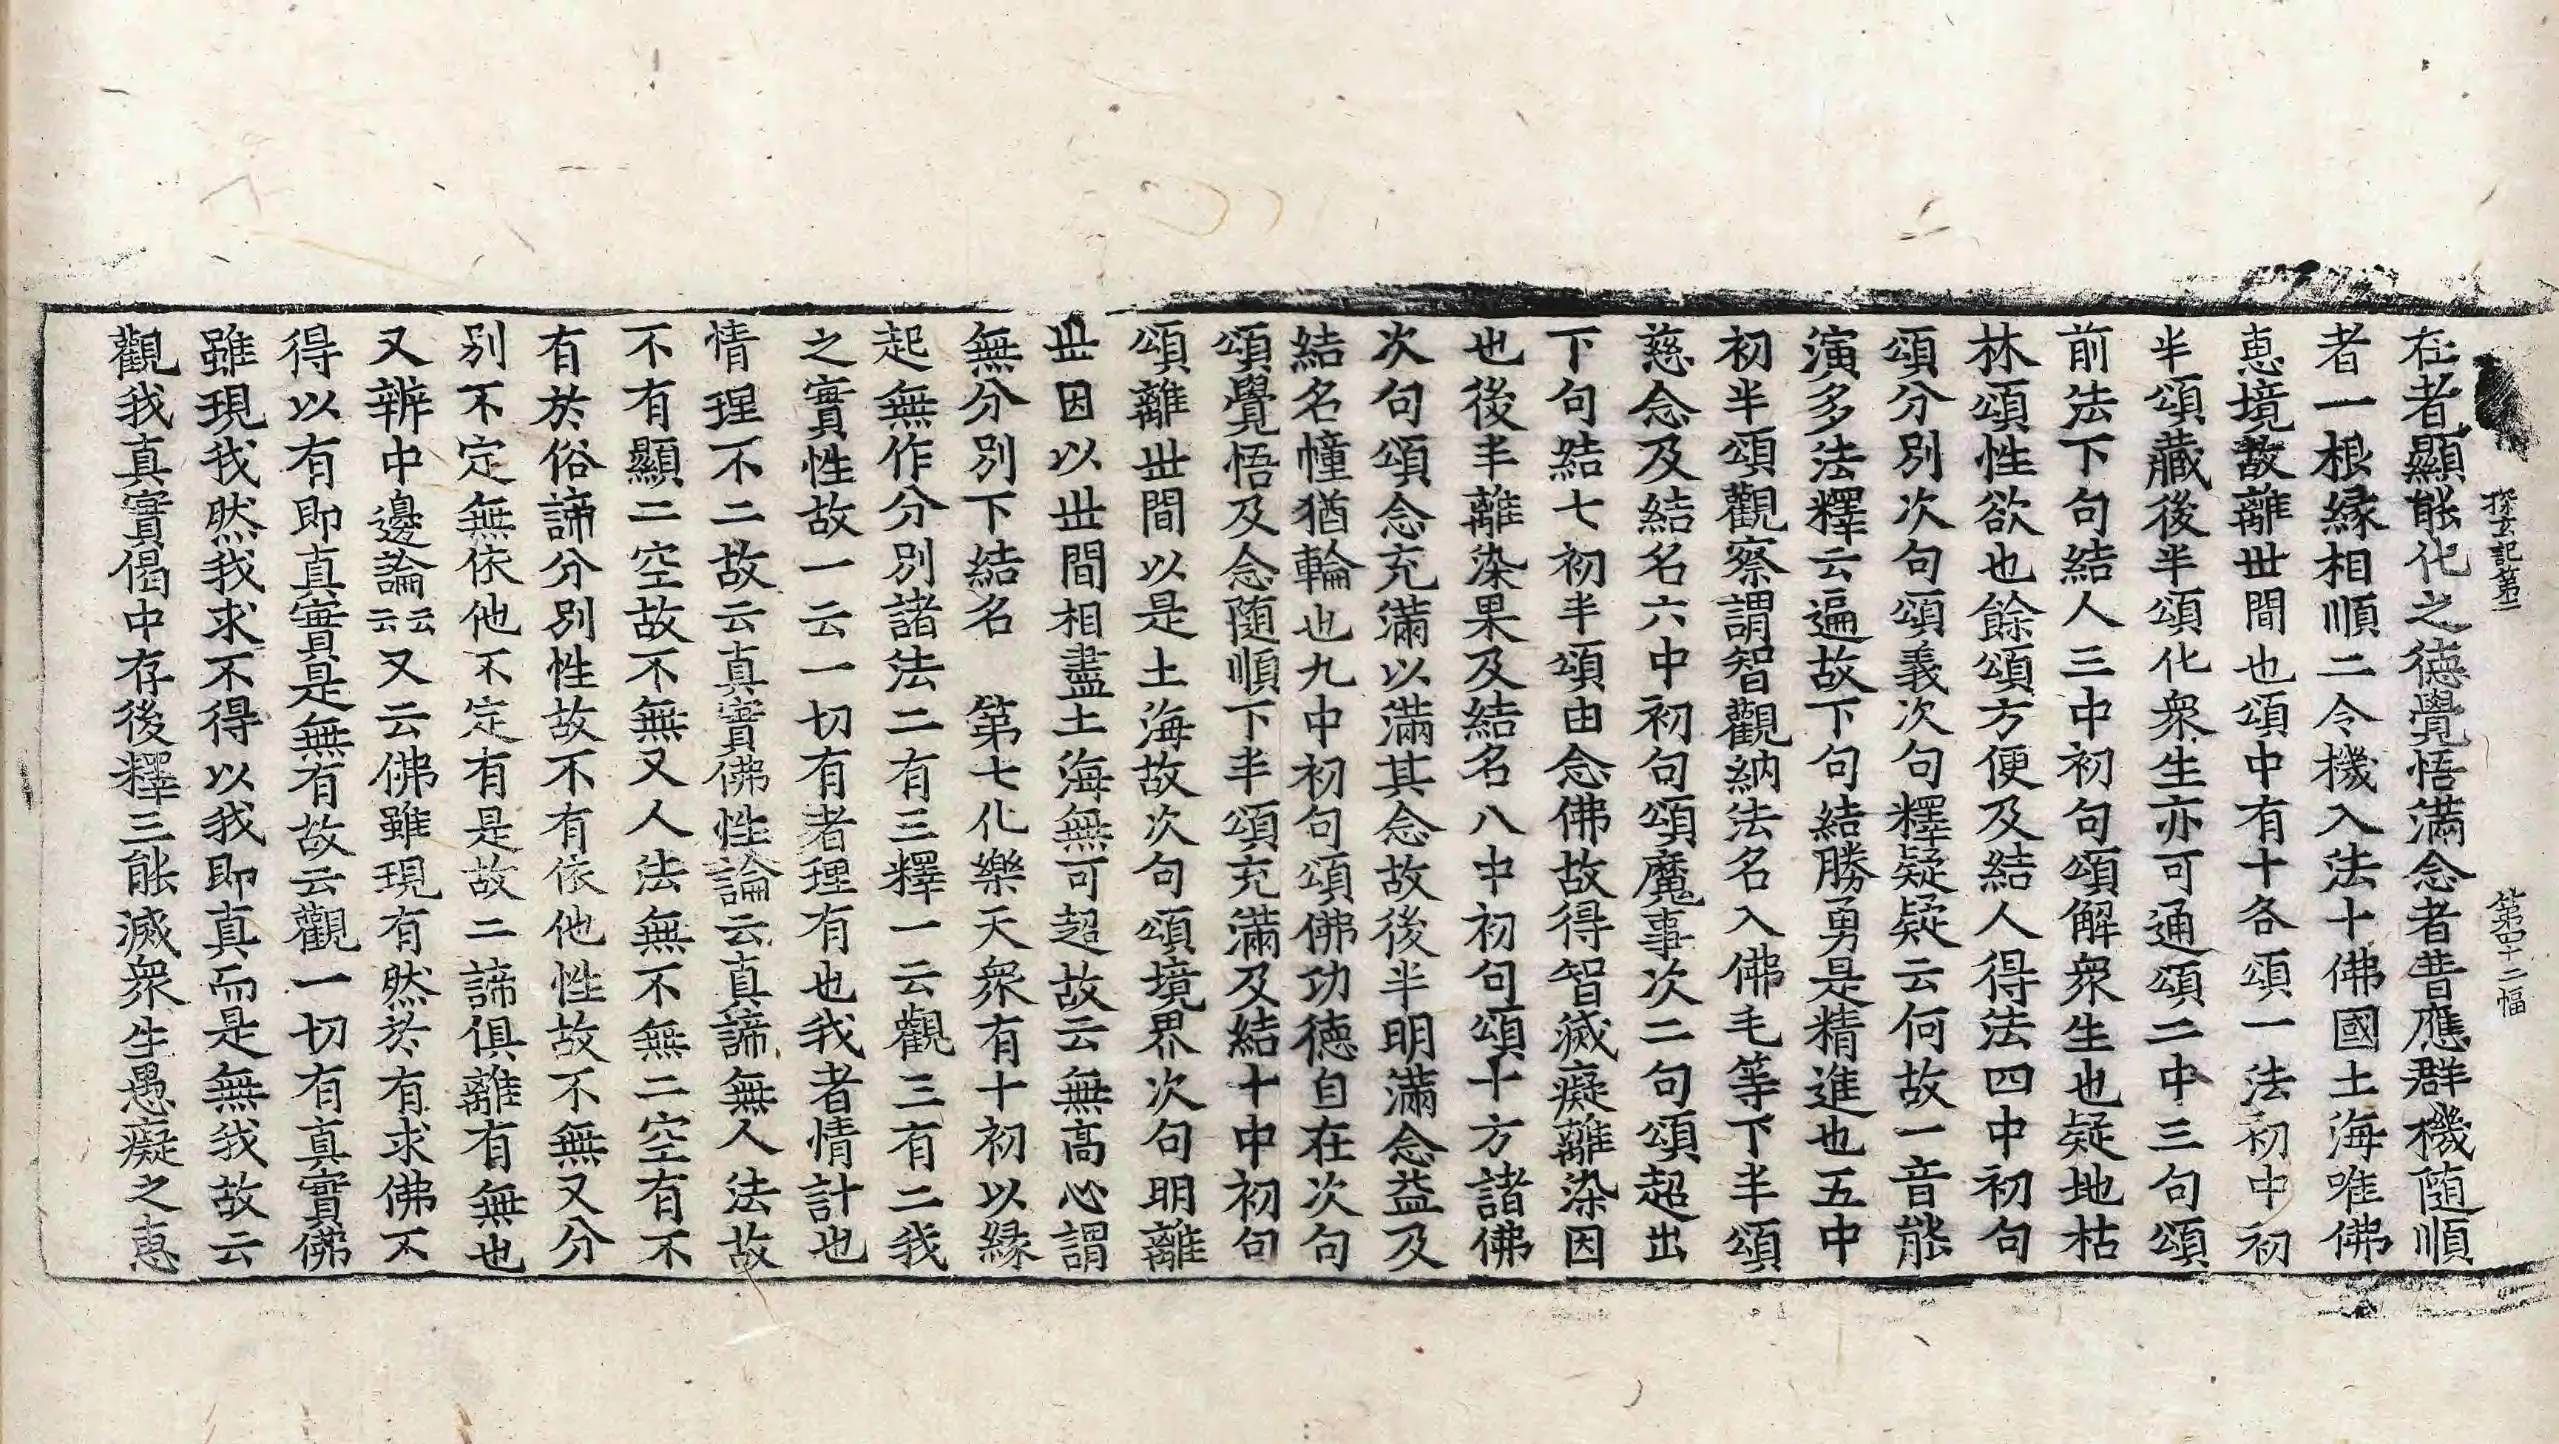 探玄記第二 第四十二幅
在者顯能化之德覺悟滿念者昔應群機随順
者一根緣相順二令機入法十佛國土海唯佛
恵境故離世間也頌中有十各頌一法初中初
半頌藏後半頌化衆生亦可通頌二中三句頌
前法下句結人三中初句頌解衆生也疑地枯
林頌性欲也餘頌方便及結人得法四中初句
頌分別次句頌義次句釋疑疑云何故一音能
演多法釋云遍故下句結勝勇是精進也五中
初半頌觀察謂智觀納法名入佛毛等下半頌
慈念及結名六中初句頌魔事次二句頌超出
下句結七初半頌由念佛故得智滅癡離染因
也後半離染果及結名八中初句頌十方諸佛
次句頌念充滿以滿其念故後半明滿念益及
結名幢猶輪也九中初句頌佛功德自在次句
頌覺悟及念随順下半頌充滿及結十中初句
頌離世間以是土海故次句頌境界次句明離
世因以世間相盡土海無可超故云無高心謂
無分別下結名 第七化樂天衆有十初以緣
起無作分別諸法二有三釋一云觀三有二我
之實性故一云一切有者理有也我者情計也
情理不二故云真實佛性論云真諦無人法故
不有顯二空故不無又人法無不無二空有不
有於俗諦分別性故不有依他性故不無又分
別不定無依他不定有是故二諦俱離有無也
又辨中邊論云云又云佛雖現有然於有求佛不
得以有即真實是無有故云觀一切有真實佛
雖現我然我求不得以我即真而是無我故云
觀我真實偈中存後釋三能滅衆生愚癡之恵